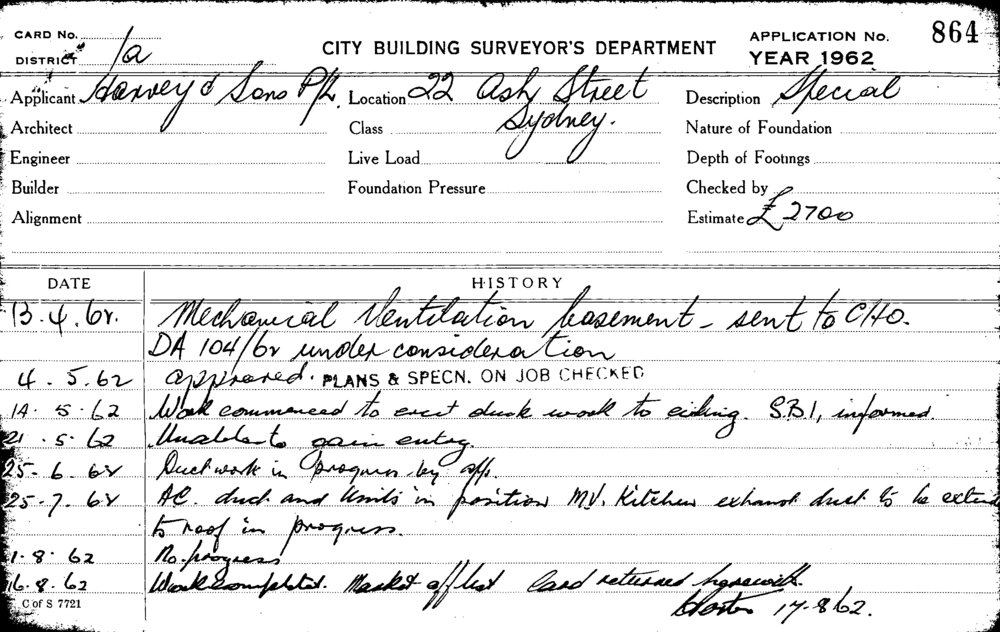 CARD No.
DISTRICT 1a
CITY BUILDING SURVEYOR'S DEPARTMENT
APPLICATION No. 864
YEAR 1962
Applicant Harvey & Sons P/L.
Location 22 Ash Street
Sydney.
Description Special
Architect
Class
Nature of Foundation
Engineer
Live Load
Depth of Footings
Builder
Foundation Pressure
Checked by
Alignment
Estimate £2700
DATE HISTORY
13.4.62. Mechanical Ventilation basement - sent to CHO.
DA 104/62 under consideration
4.5.62 approved. PLANS & SPECN. ON JOB CHECKED
14.5.62 Work commenced to erect duck work to ceiling. S.B.I, informed.
21.5.62 Unable to gain entry.
25.6.62 Duct work in progress by
25.7.62 AC. duct and Units in position M.V. Kitchen exhaust duct to be extend
to roof in progress.
1.8.62 No progress
16.8.62 Work completed. Market off list Card returned herewith.
17.8.62.
C of S 7721